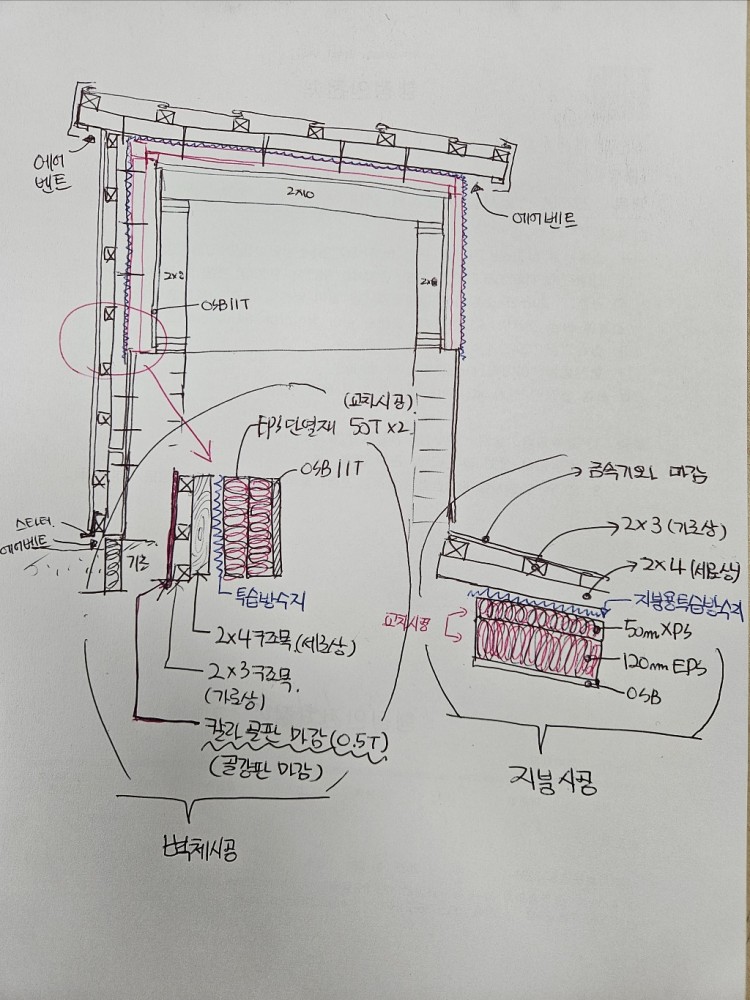 에어
벤트
2X10
에어벤트
2X
2X8
OSB 11T
(교차시공)
EPS단열재 50T X2
OSB 11T
금속기와 마감
2X3 (가로상)
2X4 (세로상)
지붕용투습방수지
교차시공
50mm XPS
120mm EPS
OSB
지붕시공
에어벤트
기초
투습방수지
2X4구조목 (세로상)
2X3구조목.
(가로상)
칼라 골판 마감 (0.5T)
(골강판 마감)
벽체시공